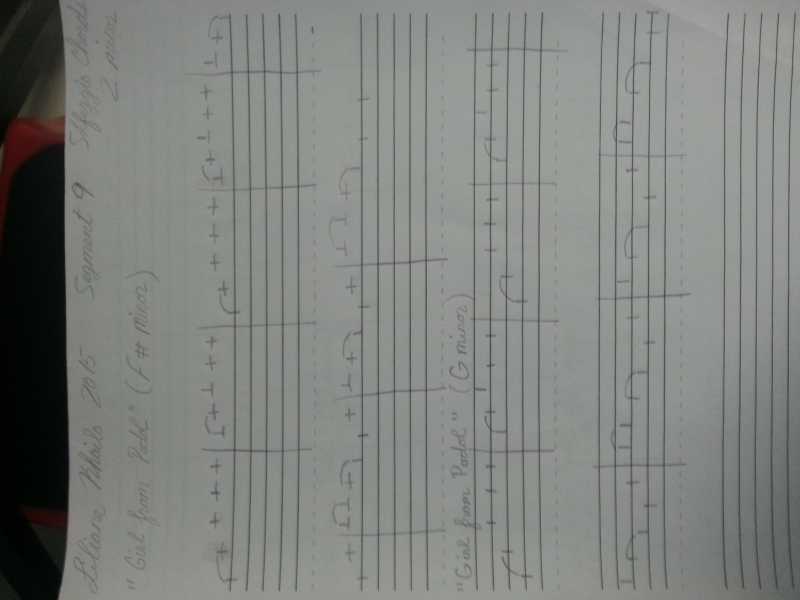 Liliane Khailo 2015 Segment 9 Solfeggio Chords
2 minor
"Girl from Podol" (F# minor)
"Girl from Podol" (G minor)